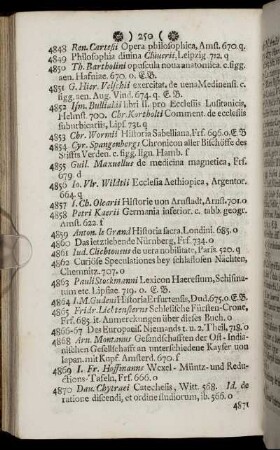 250
4848 Ren. Cartesii Opera philosophica, Amst. 670. q.
4849 Philosophia divina Clineris, Leipzig. 712. q
4850 Th. Bartholini opuscula nova anatomica. c. figg.
aen. Hafniae. 670. o. E.B.
4851 G. Hier. Velschii exercitat. de uena Medinensi. c.
figg. aen. Aug. Vind. 674. q. E.B.
4852 Ism. Bullialdi libri II. pro Ecclesiis Lusitanicis,
Helmst. 700. Chr. Kortholti Comment. de ecclesiis
suburbicariis, Lips. 731. q
4853 Chr. Wormii Historia Sabelliana, Frf. 696. o. E.B
4854 Cyr. Spangenbergs Chronicon aller Bischöffe des
Stiffts Verden. c. figg. lign. Hamb. f
4855 Guil. Maxuellus de medicina magnetica, Frf.
679. d
4856 Io. Vlr. Wildtii Ecclesia Aethiopica, Argentor.
664. q
4857 I. Ch. Olearii Historie von Arnstadt, Arnst. 701. o
4858 Petri Kaerii Germania inferior. c. tabb. geogr.
Amst. 622. f
4859 Anton. le Grand Historia sacra. Londini. 685. o
4860 Das letztlebende Nürnberg, Frf. 734. o
4861 Iud. Clichtoueus de uera nobilitate, Paris. 520. q
4862 Curiöse Speculationes bey schlaflosen Nächten,
Chemnitz. 707. o
4863 Pauli Stockmanni Lexicon Haeresium, Schismatum
etc. Lipsiae. 719. o. E.B.
4864 I. M. Gudeni Historia Erfurtensis, Dud. 675. o E.B.
4865 Fridr. Lichtensterns Schlesische Fürsten-Crone,
Frf. 685. it. Anmerckungen über dieses Buch. o
4866-67 Des Europaeisf. Niemands 1. u. 2. Theil. 718. o
4868 Arn. Montanus Gesandschafften der Ost-Indianischen
Gesellschafft an unterschiedene Kayser von
Iapan. mit Kupf. Amsterd. 670. f
4869 I. Fr. Hoffmanns Wexel- Müntz- und Reductions-Tafeln,
Frf. 666. o
4870 Dau. Chytraei Catechesis, Witt. 568. Id. de
ratione discendi, et ordine studiorum, ib. 566. o
4871